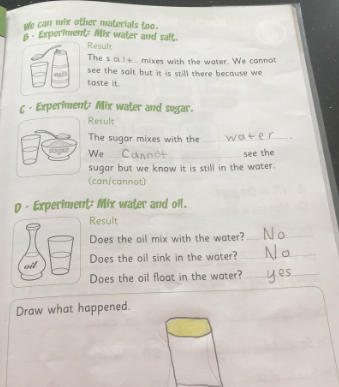 We can mix other materials too.
B - Experiment: Mix water and salt.
Result
The salt mixes with the water. We cannot
see the salt but it is still there because we
taste it.
salt
C - Experiment: Mix water and sugar.
Result
The sugar mixes with the water.
We Cannot see the
sugar but we know it is still in the water.
(can/cannot)
sugar
D - Experiment: Mix water and oil.
Result
Does the oil mix with the water? No
Does the oil sink in the water? No
Does the oil float in the water? yes
oil
Draw what happened.